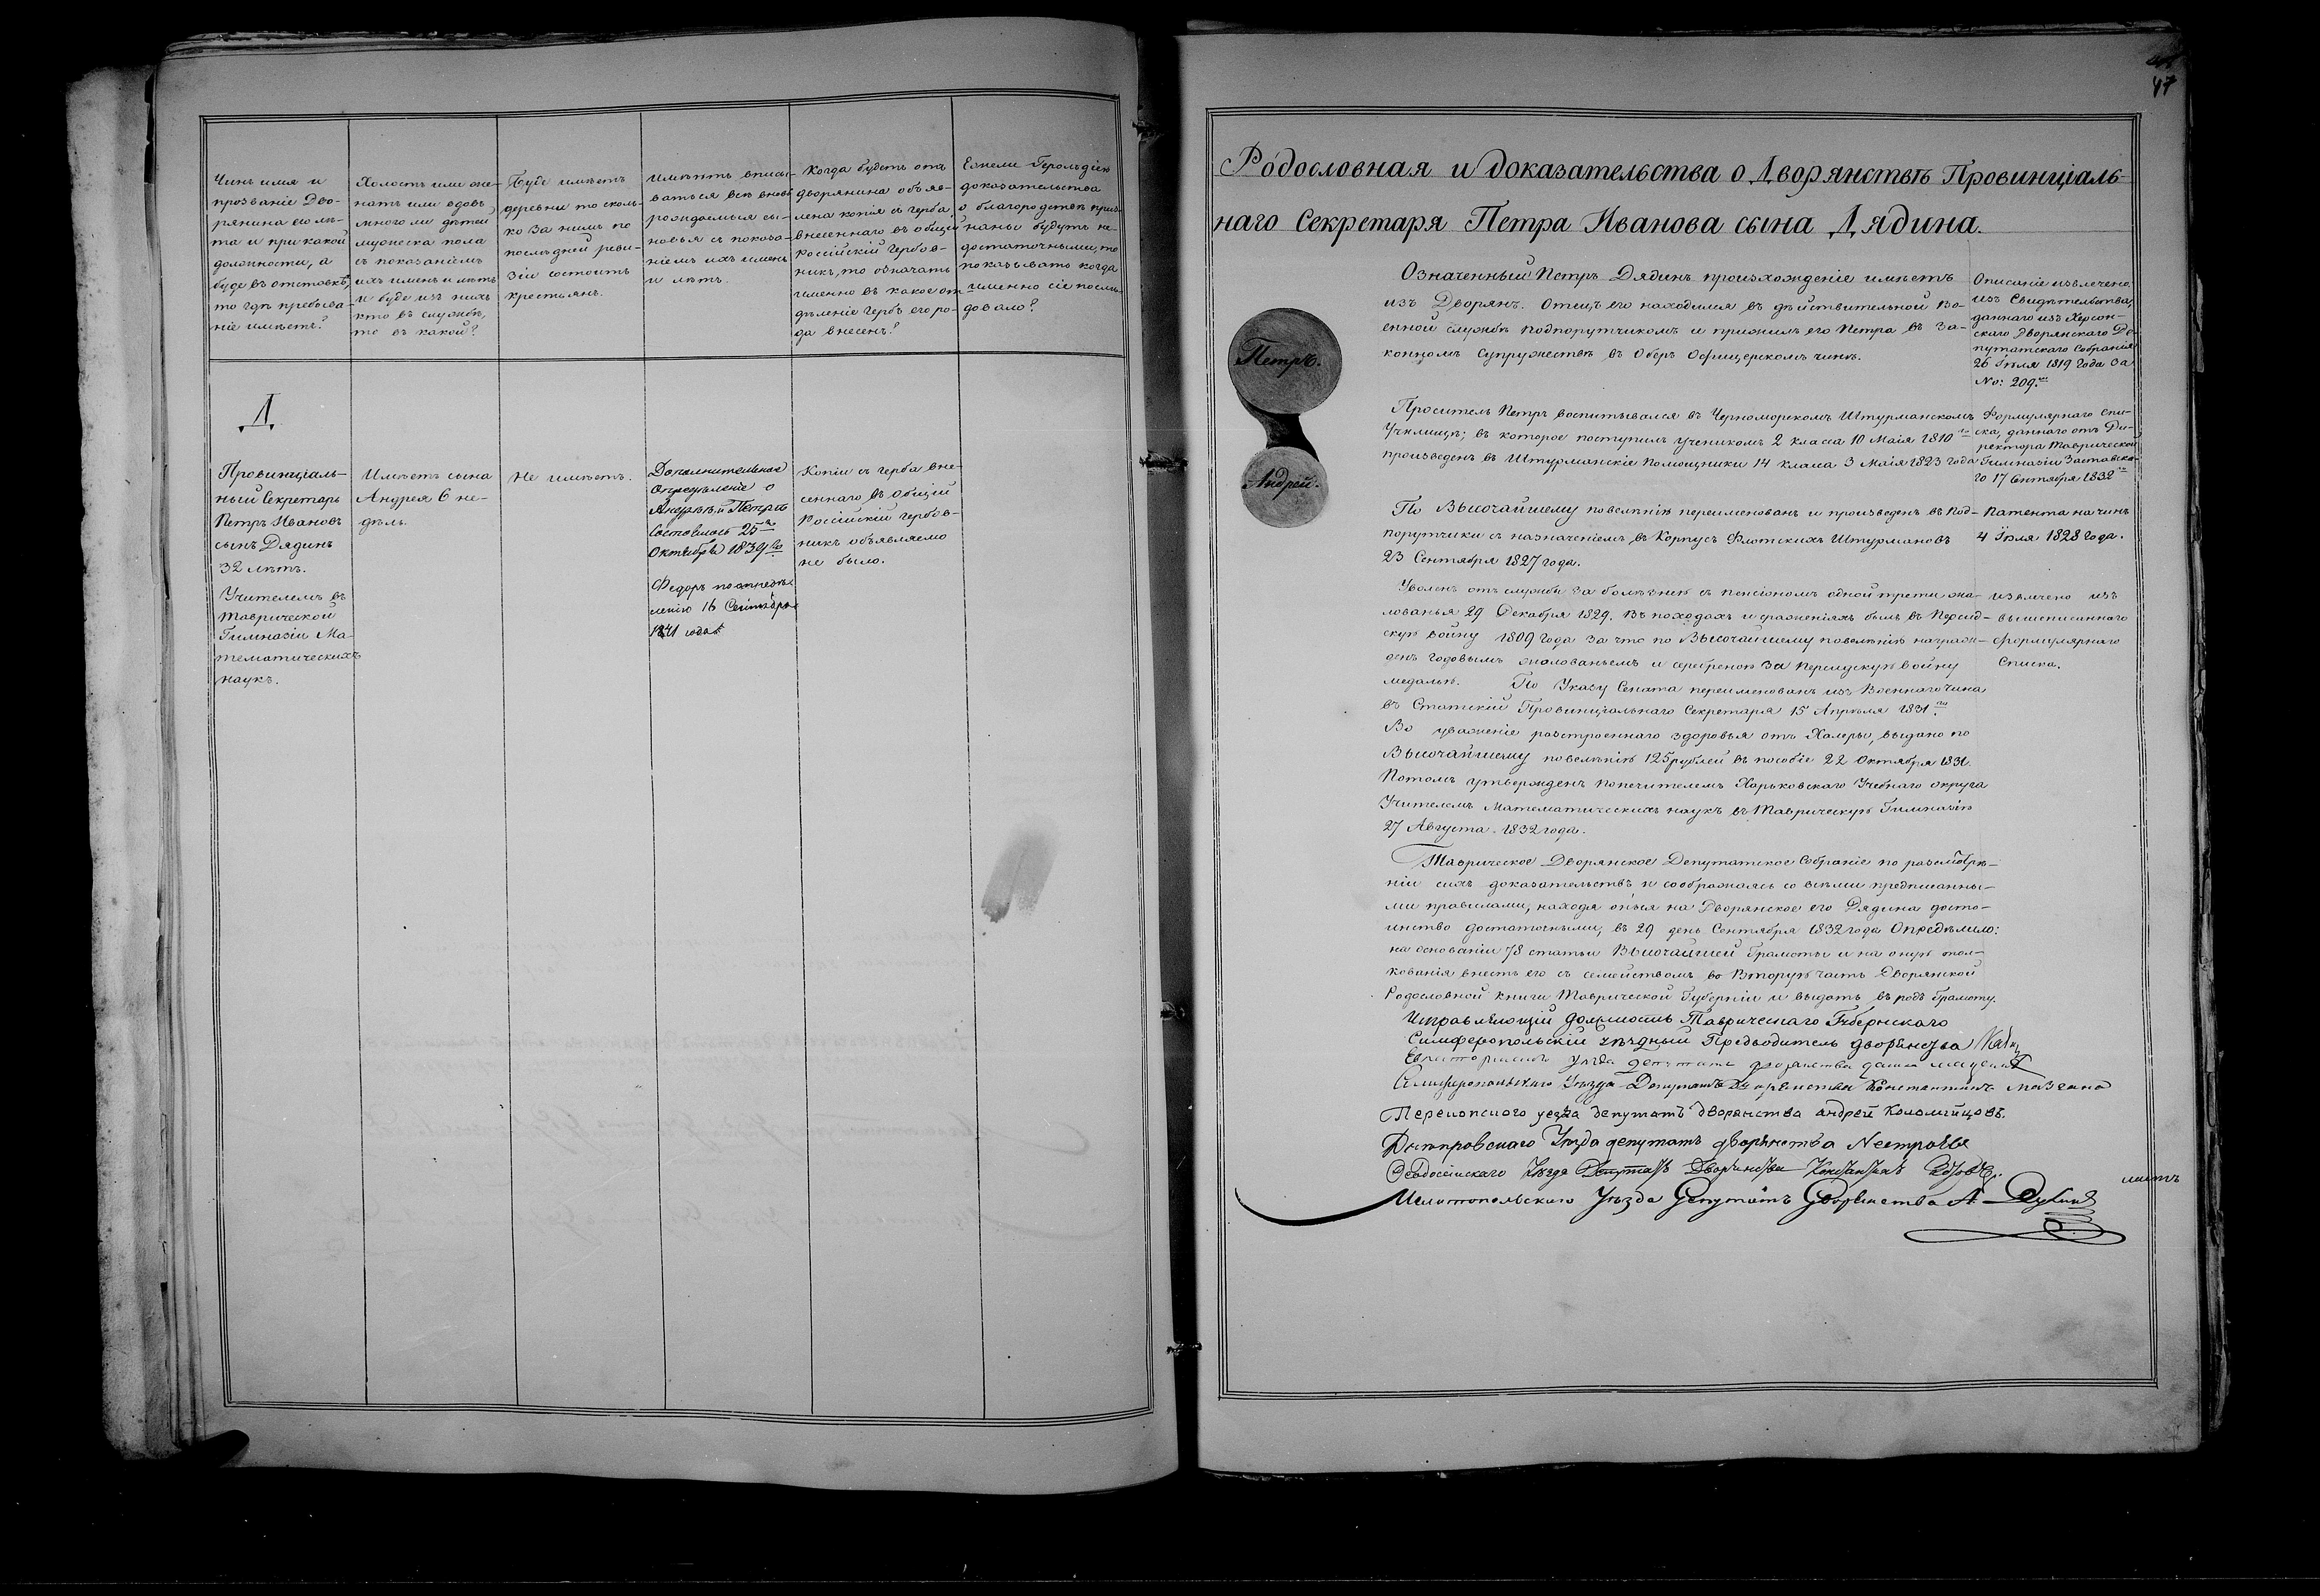 Чинъ имя и
прозваніе Дво-
рянина его лѣ-
та и при какой
должности, а
буде въ отставкѣ,
то гдѣ пребыва-
ніе имѣетъ?
Холостъ или же-
натъ или вдовъ
много ли дѣтей
мужеска пола
съ показаніемъ
ихъ именъ и лѣтъ
и буде изъ нихъ
кто въ службѣ,
то въ какой?
Буде имѣетъ
деревни то сколь-
ко за нимъ по
послѣдней реви-
зіи состоитъ
крестьянъ.
Имѣютъ вписы-
ваться всѣ вновь
рождаемыя сы-
новья съ показа-
ніемъ ихъ именъ
и лѣтъ.
Когда будетъ отъ
дворянина объяв-
лена копія съ герба,
внесеннаго въ общій
Россійскій Гербов-
никъ, то означать
именно въ какое от-
дѣленіе гербъ его ро-
да внесенъ?
Ежели Герольдіею
доказательства
о благородствѣ приз-
наны будутъ не-
достаточными, то
показывать когда
именно сіе послѣ-
довало?
Д.
Провинціаль-
ный Секретарь
Петръ Ивановъ
сынъ Дядинъ
32 лѣтъ.
Учителемъ въ
Таврической
Гимназіи Ма-
тематическихъ
наукъ.
Имѣетъ сына
Андрея 6 не-
дѣль.
Не имѣетъ.
Дополнительное
Опредѣленіе о
Андреѣ и Петрѣ
состоялось 25го
Октября 1839го
Федоръ по опредѣ-
ленію 16 Сентября
1841 года
Копіи съ герба вне-
сеннаго въ общій
Россійскій гербов-
никъ объявляемо
не было.
47
Родословная и доказательства о Дворянствѣ Провинціаль-
наго Секретаря Петра Иванова сына Дядина.
Петръ.
Андрей.
Означенный Петръ Дядинъ произхожденіе имѣетъ
изъ Дворянъ. Отецъ его находился въ дѣйствительной Во-
енной службѣ Подпорутчикомъ и прижилъ его Петра въ за-
конномъ супружествѣ въ Оберъ Офицерскомъ чинѣ.
Описаніе извлечено
изъ Свидѣтельства,
даннаго изъ Херсон-
скаго Дворянскаго Де-
путатскаго Собранія
26 Іюля 1819 года за
No: 209.мъ
Проситель Петръ воспитывался въ Черноморскомъ Штурманскомъ
Училищѣ; въ которое поступилъ ученикомъ 2 класса 10 Маія 1810го
произведенъ въ Штурманскіе Помощники 14 класса 3 Маія 1823 года
Формулярнаго спи-
ска, даннаго отъ Ди-
ректора Таврической
Гимназіи Заставска-
го 17 Сентября 1832го
По Высочайшему повелѣнію переименованъ и произведенъ въ Под-
порутчики съ назначеніемъ въ Корпусъ Флотскихъ Штурмановъ
23 Сентября 1827 года.
Патента на чинъ
4 Іюля 1828 года.
Уволенъ отъ службы за болѣзнію съ пенсіономъ одной трети жа-
лованья 29 Декабря 1829. Въ походахъ и сраженіяхъ былъ въ Персид-
скую войну 1809 года за что по Высочайшему повелѣнію награж-
денъ годовымъ жалованьемъ и серебреною за Персидскую войну
медалью. По Указу Сената переименованъ изъ Военнаго чина
въ Статскій Провинціальнаго Секретаря 15 Апрѣля 1831го
Во уваженіе разстроеннаго здоровья отъ Холеры, выдано по
Высочайшему повелѣнію 125 рублей въ пособіе 22 Октября 1831.
Потомъ утвержденъ Попечителемъ Харьковскаго Учебнаго округа
Учителемъ Математическихъ наукъ въ Таврическую Гимназію
27 Августа 1832 года.
извлечено изъ
вышеписаннаго
формулярнаго
Списка.
Таврическое Дворянское Депутатское Собраніе по разсмотрѣ-
ніи сихъ доказательствъ и соображаясь со всѣми предписанны-
ми правилами, находя оныя на Дворянское его Дядина досто-
инство достаточными, въ 29 день Сентября 1832 года Опредѣлило:
на основаніи 78 статьи Высочайшей Грамоты и на оную тол-
кованія внесть его съ семействомъ во Вторую часть Дворянской
Родословной книги Таврической Губерніи и выдать въ родъ Грамоту.
Исправляющій должность Таврическаго Губернскаго
Симферопольскій уѣздный Предводитель дворянства
Евпаторійскаго уѣзда депутатъ дворянства
Симферопольскаго Уѣзда Депутатъ Дворянства Константинъ
Перекопского уезда депутатъ дворянства андрей Коломийцовъ.
Днѣпровскаго Уѣзда депутатъ дворянства
Ѳеодосійскаго Уѣзда Депутатъ Дворянства Константинъ
Мелитопольскаго Уѣзда Депутатъ Дворянства А
листъ